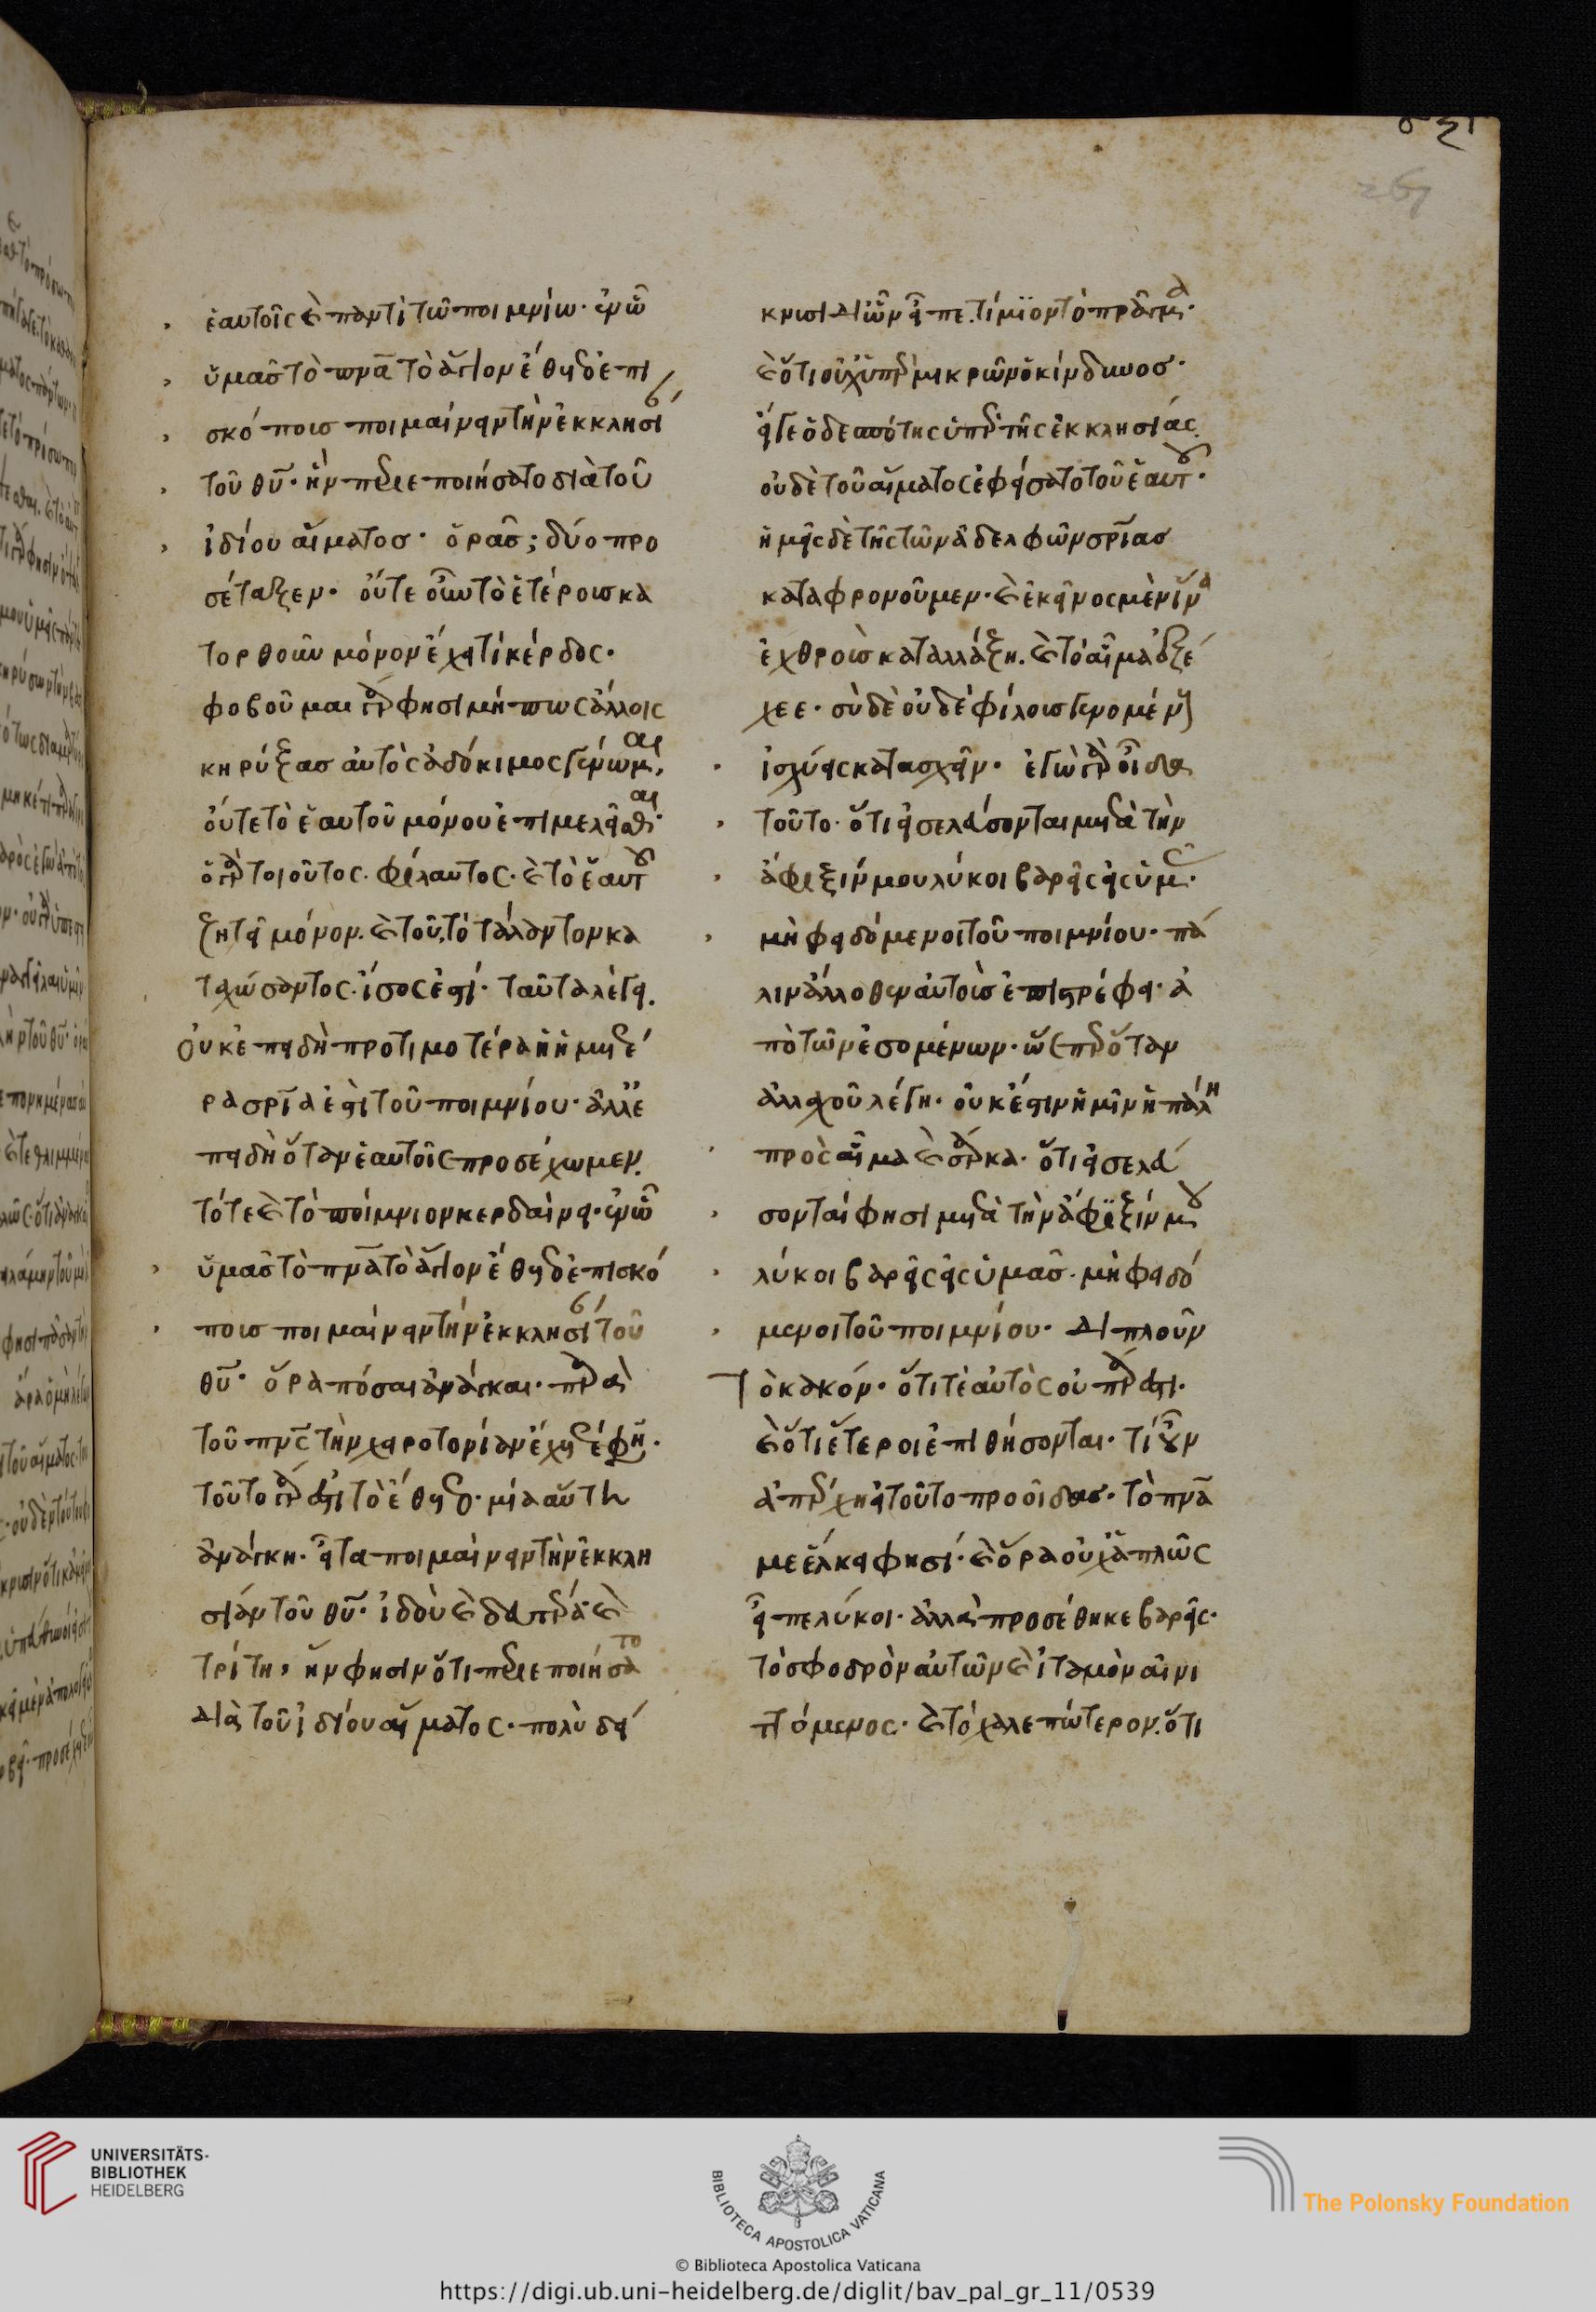 ἑαυτοῖς καὶ παντὶ τῷ ποιμνίῳ. ἐν ᾧ
ὑμᾶς τὸ πνα τὸ ἅγιον ἔθετο ἐπι
σκόποις ποιμαίνειν τὴν ἐκκλησί
τοῦ θυ. ἣν περιεποιήσατο διὰ τοῦ
ἰδίου αἵματος. ὁρᾶς; δύο προ
σέταξεν. οὔτε οὖν τὸ ἑτέροις κα
τορθοῦν μόνον ἔχει τι κέρδος.
φοβοῦμαι γὰρ φησὶ μήπως ἄλλοις
κηρύξας αὐτὸς ἀδόκιμος γένωμαι,
οὔτε τὸ ἑαυτοῦ μόνου ἐπιμελεῖσθαι.
ὁ γὰρ τοιοῦτος. φίλαυτος. καὶ τὸ ἑαυτοῦ
ζητεῖ μόνον. καὶ τοῦ τὸ τάλαντον κα
ταχώσαντος. ἴσος ἐστί. ταῦτα λέγει.
Οὐκ ἐπειδὴ προτιμοτέρα ἡ ἡμετέ
ρα σρία ἐστὶ τοῦ ποιμνίου. ἀλλ ἐ
πειδὴ ὅταν ἑαυτοῖς προσέχωμεν.
τότε καὶ τὸ ποίμνιον κερδαίνει. ἐν ᾧ
ὑμᾶς τὸ πνα τὸ ἅγιον ἔθετο ἐπισκό
ποις ποιμαίνειν τὴν ἐκκλησί τοῦ
θυ. ὅρα πόσαι ἀνάγκαι. παρὰ
τοῦ πνς τὴν χειροτονίαν ἔχετέ φη.
τοῦτο γάρ ἐστι τὸ ἔθετο. μία αὕτη
ἀνάγκη. εἶτα ποιμαίνειν τὴν ἐκκλη
σίαν τοῦ θυ. ἰδοὺ καὶ δευτέρα. καὶ
τρίτη, ἥν φησιν ὅτι περιεποιήσατο
διὰ τοῦ ἰδίου αἵματος. πολὺ δεί
κνυσι δι ὧν εἶπε. τίμιον τὸ πρᾶγμα.
καὶ ὅτι οὐχ ὑπὲρ μικρῶν ὁ κίνδυνος.
εἴγε ὁ δεσπότης ὑπὲρ τῆς ἐκκλησίας.
οὐδὲ τοῦ αἵματος ἐφείσατο τοῦ ἑαυτοῦ.
ἡμεῖς δὲ τῆς τῶν ἀδελφῶν σρίας
καταφρονοῦμεν. καὶ ἐκεῖνος μὲν ἵνα
ἐχθροὺς καταλλάξη. καὶ τὸ αἷμα ἐξέ
χεε. σὺ δὲ οὐδὲ φίλους γενομένους
ἰσχύεις κατασχεῖν. ἐγὼ γὰρ οἶδα
τοῦτο. ὅτι εἰσελεύσονται μετὰ τὴν
ἄφιξίν μου λύκοι βαρεῖς εἰς ὑμᾶς.
μὴ φειδόμενοι τοῦ ποιμνίου. πά
λιν ἄλλοθεν αὐτοὺς ἐπιστρέφει. ἀ
πὸ τῶν ἐσομένων. ὥσπερ ὅταν
ἀλλαχοῦ λέγη. οὐκ ἔστιν ἡμῖν ἡ πάλη
πρὸς αἷμα καὶ σάρκα. ὅτι εἰσελεύ
σονταί φησι μετὰ τὴν ἄφιξίν μου
λύκοι βαρεῖς εἰς ὑμᾶς. μὴ φειδό
μενοι τοῦ ποιμνίου. διπλοῦν
τὸ κακόν. ὅτι τὲ αὐτὸς οὐ πάρεστι.
καὶ ὅτι ἕτεροι ἐπιθήσονται. τί οὖν
ἀπέρχη εἰ τοῦτο προοῖδας. τὸ πνα
με ἕλκει φησί. καὶ ὅρα οὐχ ἁπλῶς
εἶπε λύκοι. ἀλλὰ προσέθηκε βαρεῖς.
τὸ σφοδρὸν αὐτῶν καὶ ἰταμὸν αἰνι
ττόμενος. καὶ τὸ χαλεπώτερον. ὅτι
267
UNIVERSITÄTS-
BIBLIOTHEK
HEIDELBERG
BIBLIOTECA APOSTOLICA VATICANA
© Biblioteca Apostolica Vaticana
The Polonsky Foundation
https://digi.ub.uni-heidelberg.de/diglit/bav_pal_gr_11/0539